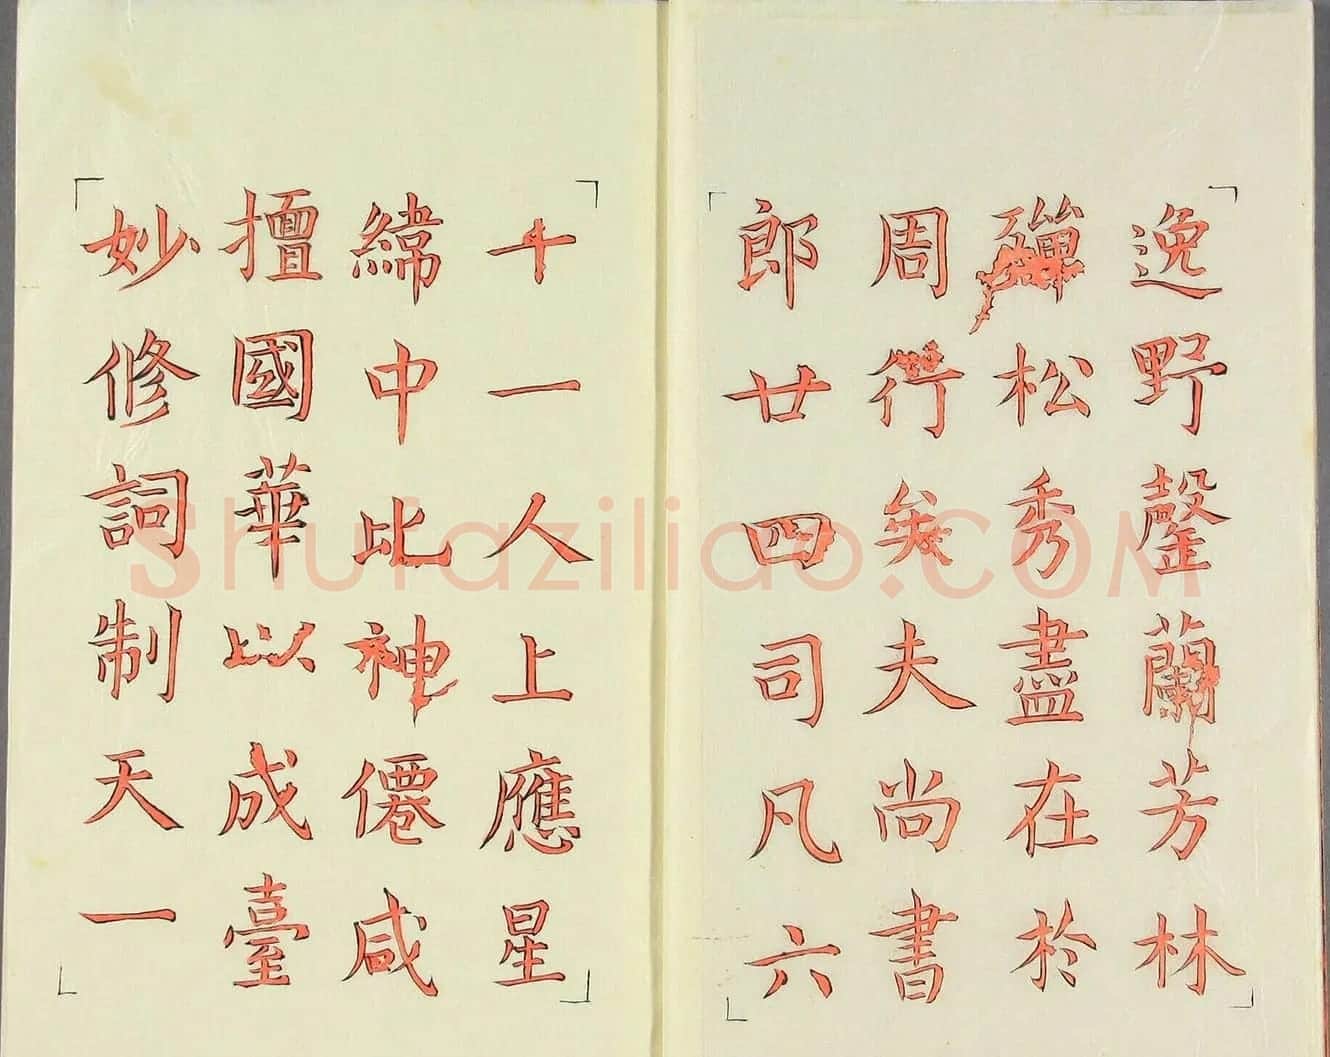 逸野罄蘭芳林
殫松秀盡在於
周行矣夫尚書
郎廿四司凡六
十一人上應星
緯中比神僊咸
擅國華以成臺
妙修詞制天一
shufaziliao.COM